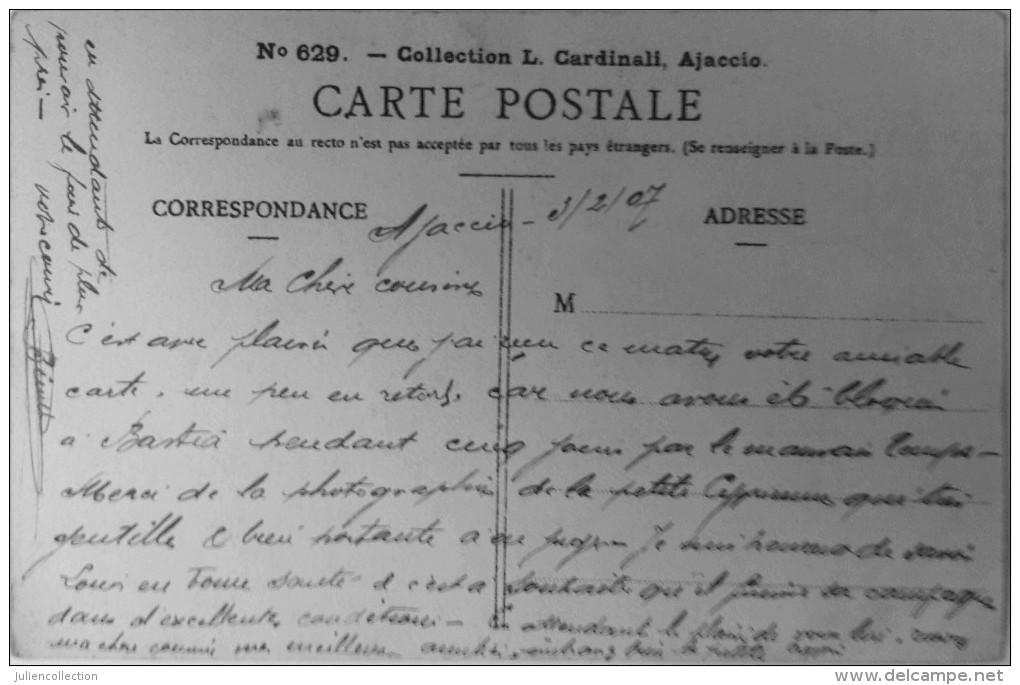 No 629. — Collection L. Cardinali, Ajaccio.
CARTE POSTALE
La Correspondance au recto n'est pas acceptée par tous les pays étrangers. (Se renseigner à la Poste.)
CORRESPONDANCE
ADRESSE
M
Ajaccio - 3/2/07
Ma chère cousine
C'est avec plaisir que j'ai reçu ce matin votre aimable
carte, un peu en retard, car nous avons été bloqués
à Bastia pendant cinq jours par le mauvais temps -
Merci de la photographie de la petite
gentille & bien portante Je suis heureux de savoir
Louis en bonne santé - il est à souhaiter qu'il finisse sa campagne
dans d'excellentes conditions - En attendant le plaisir de vous
ma chère cousine mes meilleures
en attendant de
pouvoir le faire de plus
près - votre cousin
Juliencollection
delcampe.net